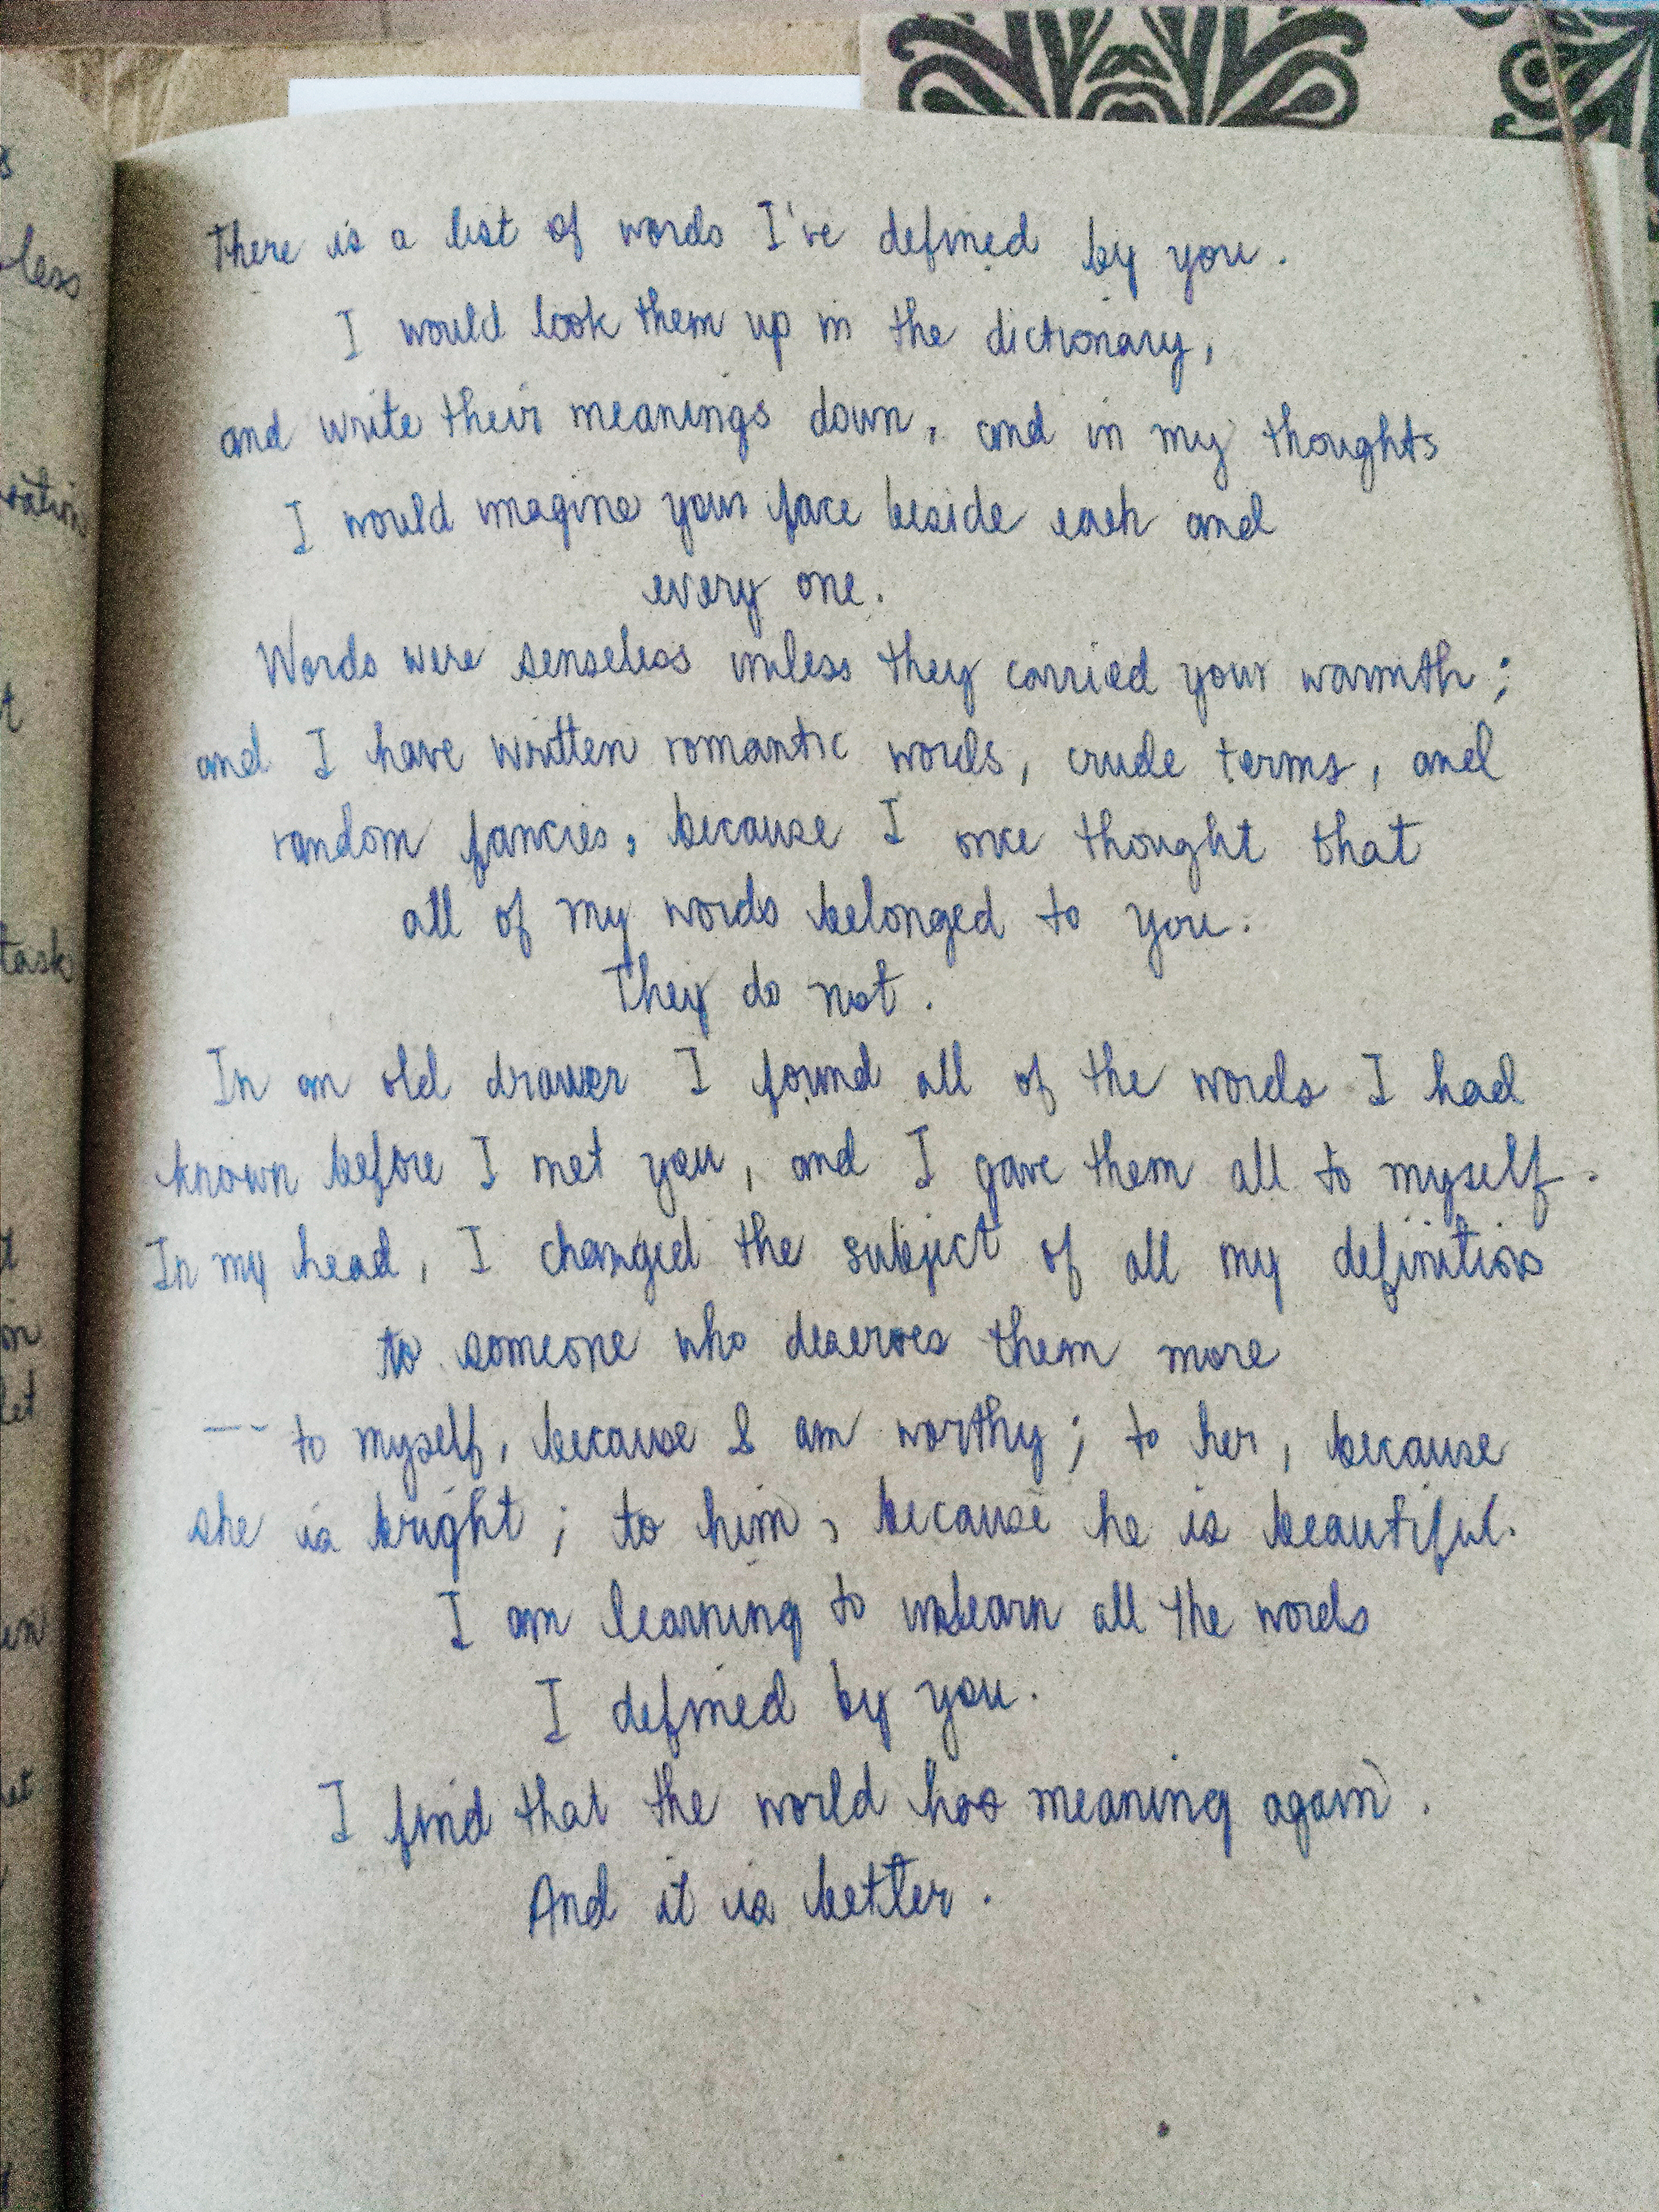 There is a list of words I've defined by you.
I would look them up in the dictionary,
and write their meanings down, and in my thoughts
I would imagine your face beside each and
every one.
Words were senseless unless they carried your warmth;
and I have written romantic words, crude terms, and
random fancies, because I once thought that
all of my words belonged to you.
They do not.
In an old drawer I found all of the words I had
known before I met you, and I gave them all to myself.
In my head, I changed the subject of all my definitions
to someone who deserves them more
-- to myself, because I am worthy; to her, because
she is bright; to him, because he is beautiful.
I am learning to unlearn all the words
I defined by you.
I find that the world has meaning again.
And it is better.
less
task